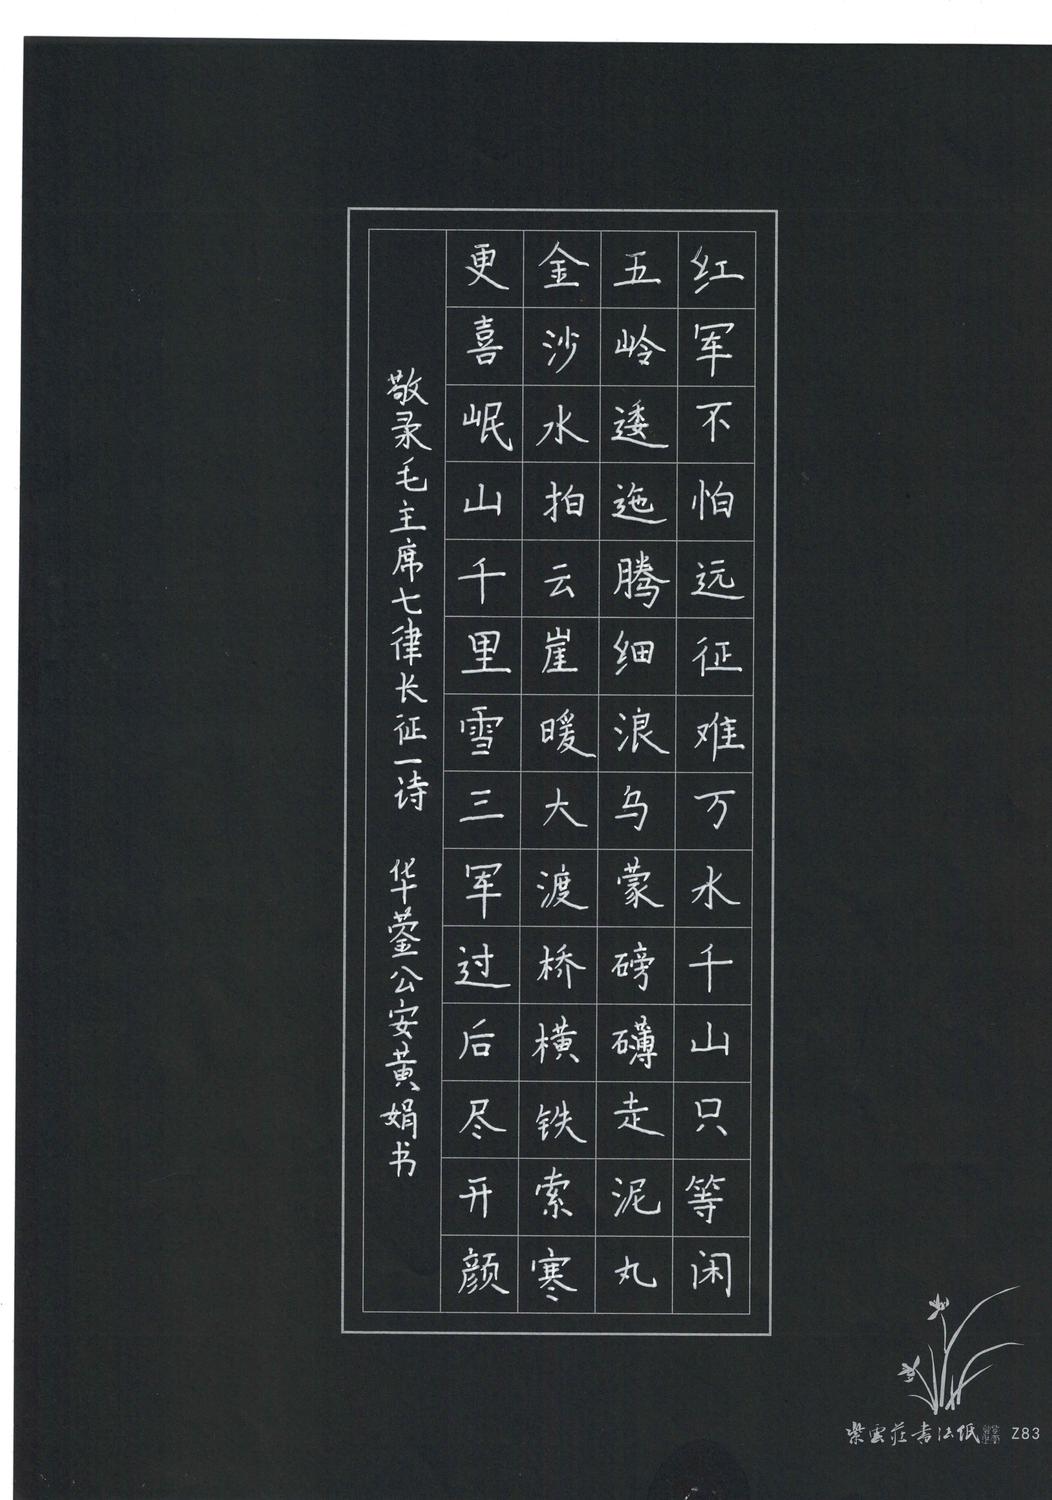 红军不怕远征难万水千山只等闲
五岭逶迤腾细浪乌蒙磅礴走泥丸
金沙水拍云崖暖大渡桥横铁索寒
更喜岷山千里雪三军过后尽开颜
敬录毛主席七律长征一诗 华蓥公安黄娟书
紫雲莊书法纸 Z83